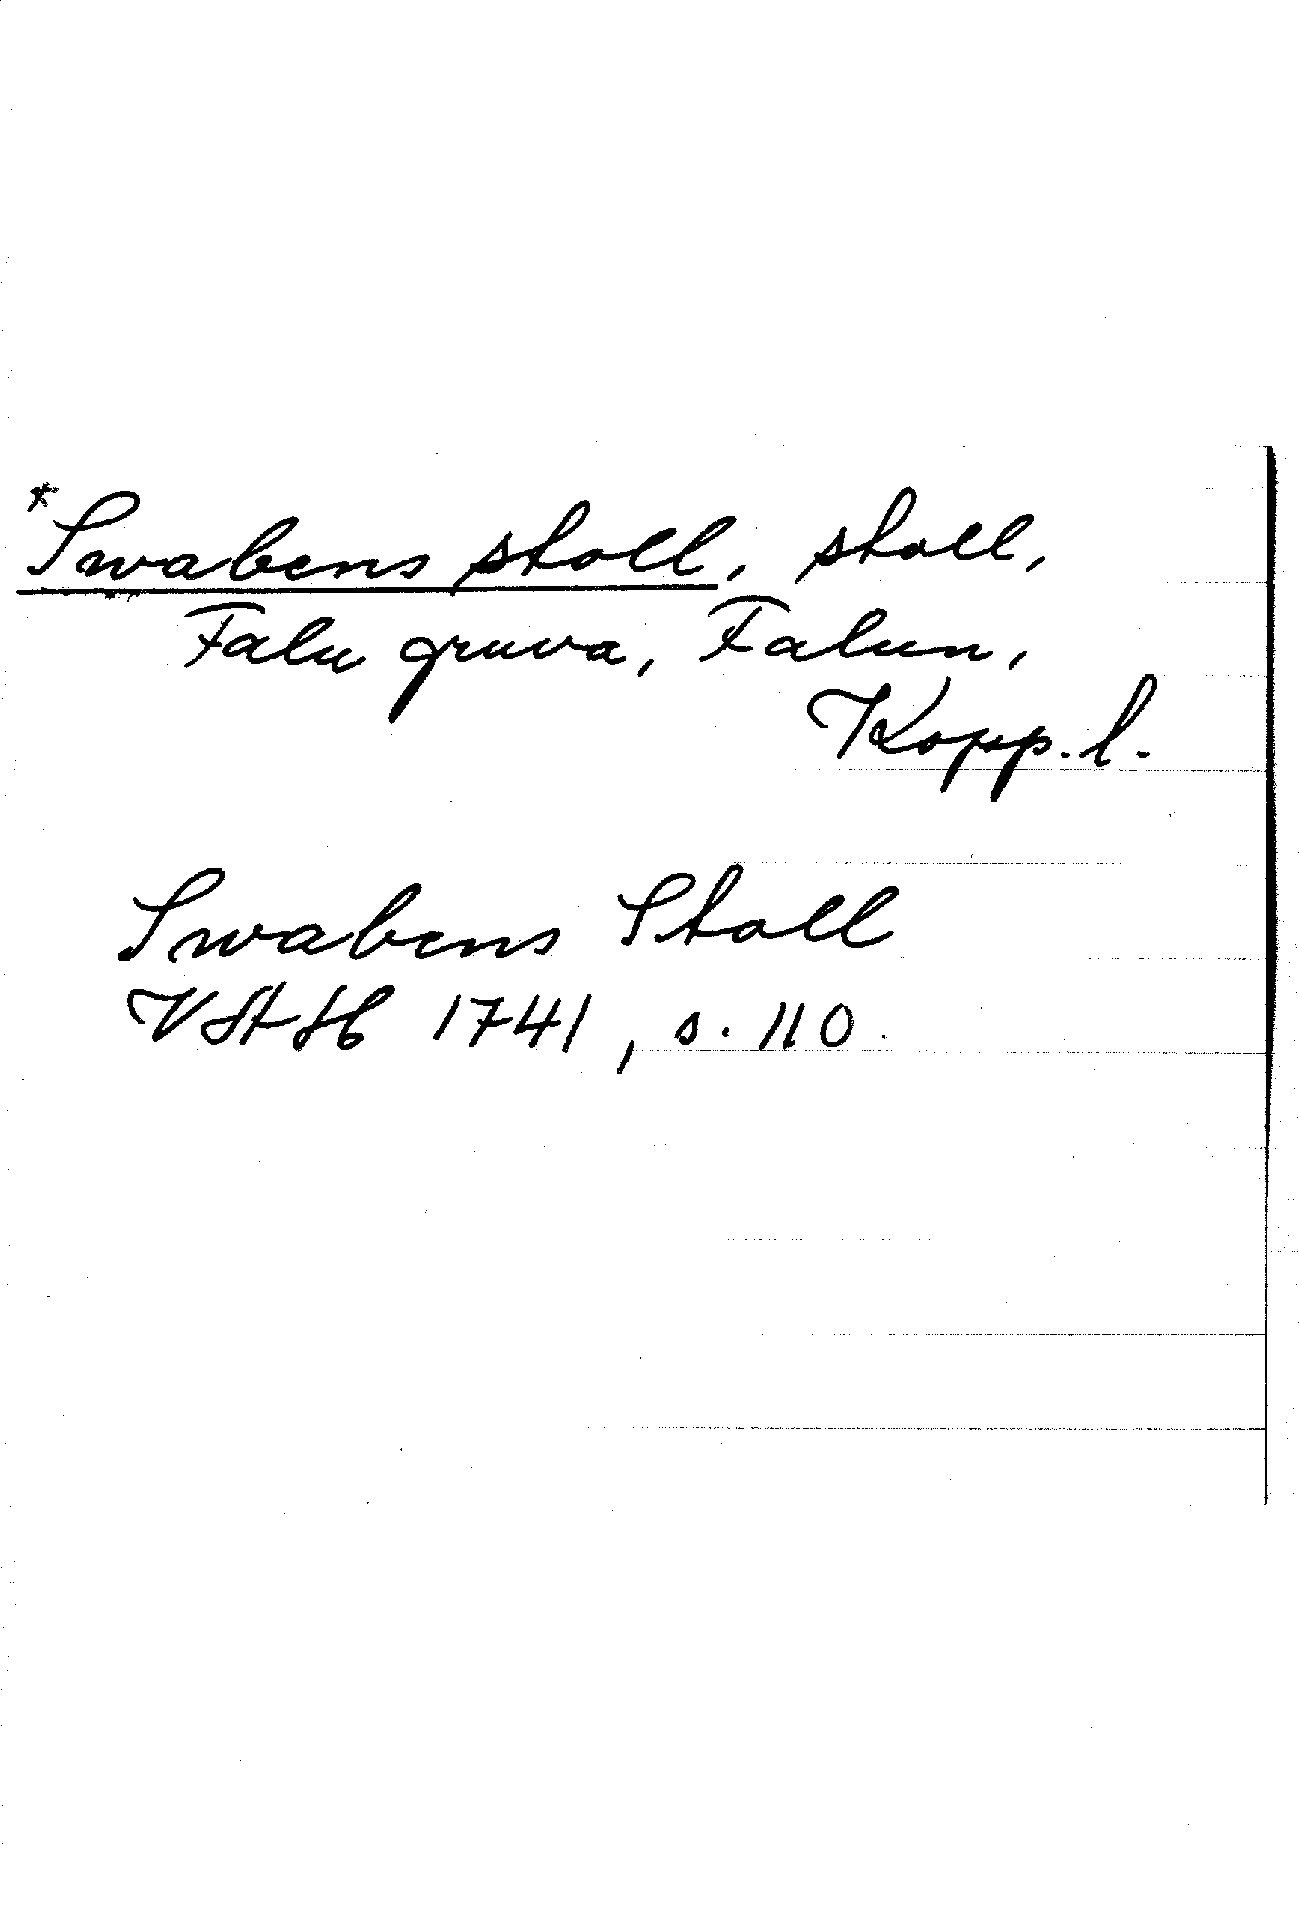 *Swabens stoll, stoll,
Falu gruva, Falun,
Kopp. l.
Swabens Stoll
VAH 1741, s. 110.